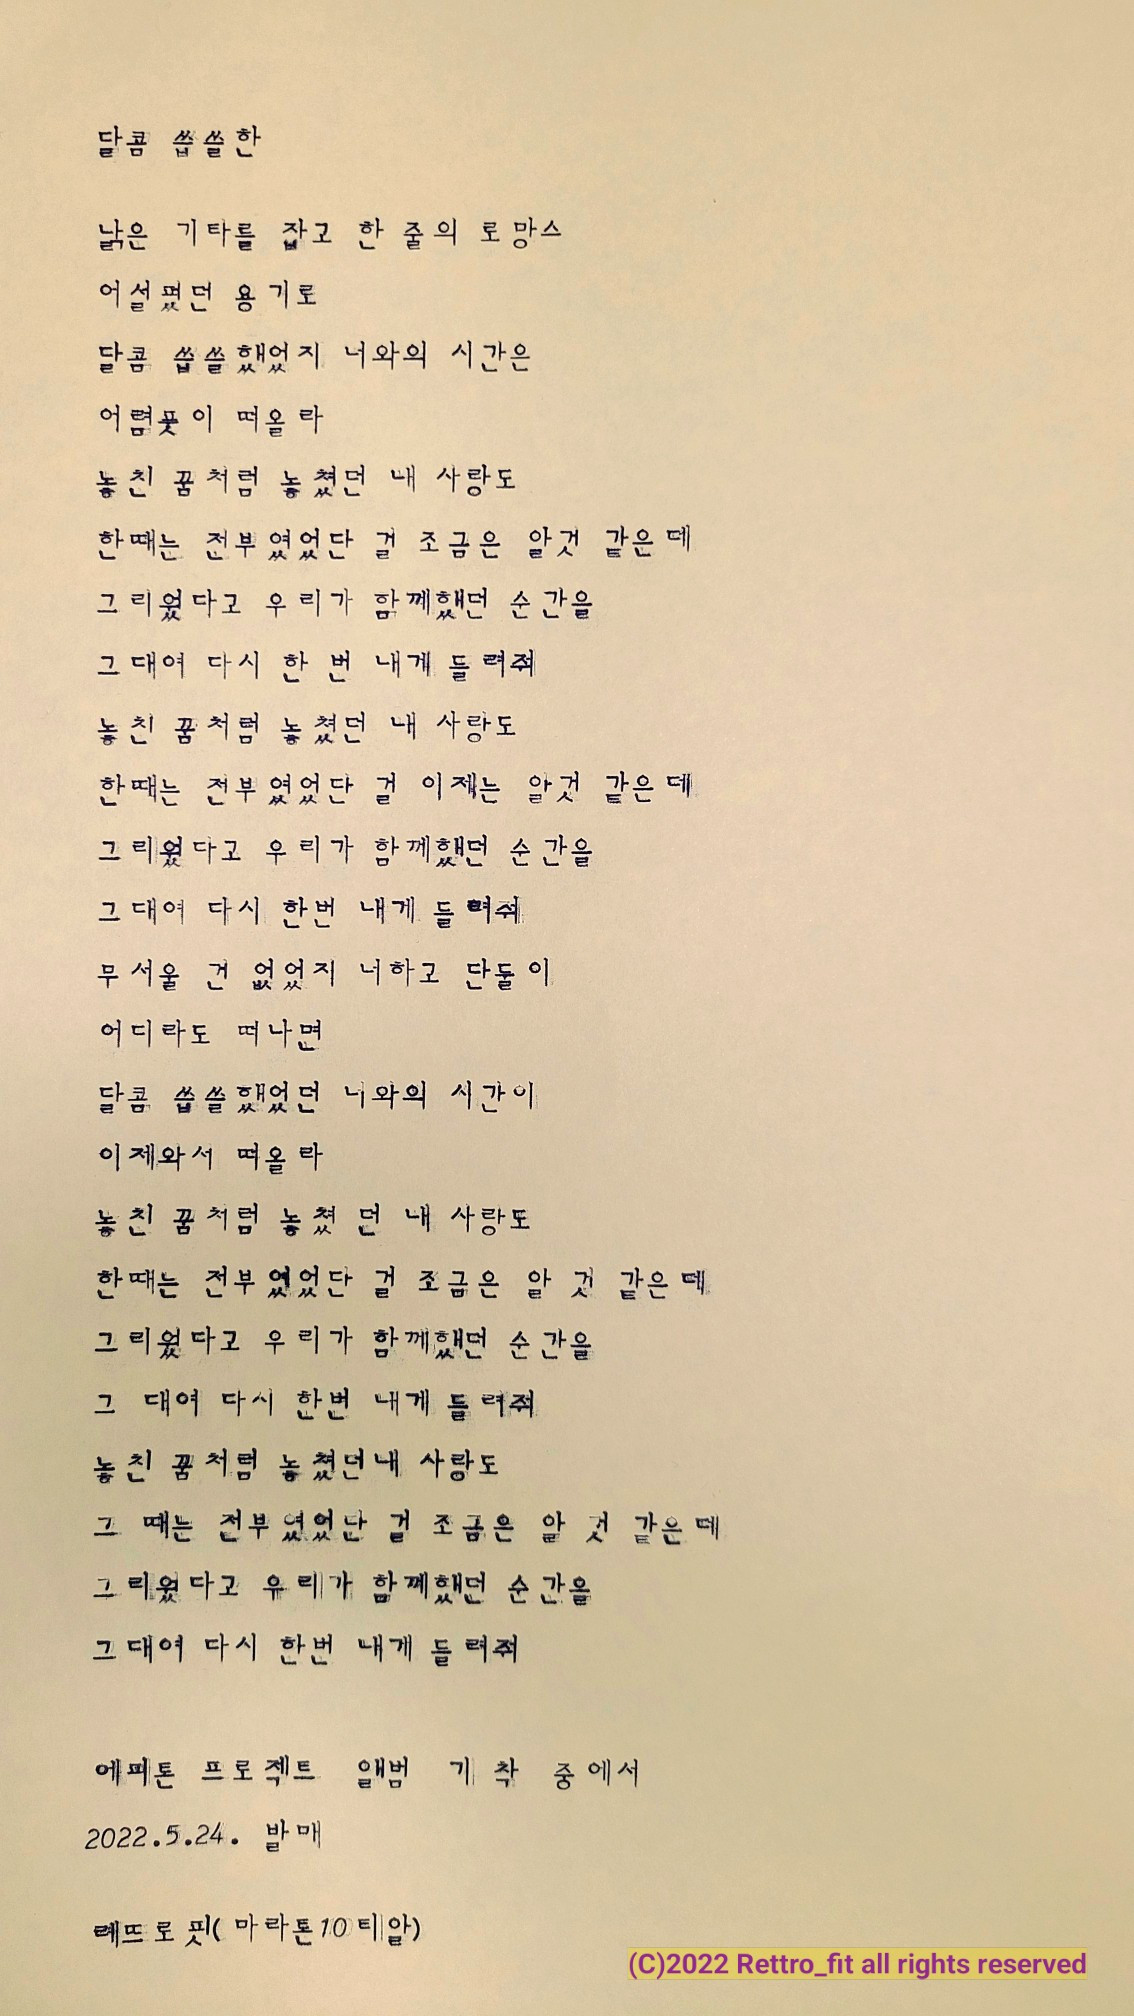 달콤 씁쓸한
낡은 기타를 잡고 한 줄의 로망스
어설펐던 용기로
달콤 씁쓸했었지 너와의 시간은
어렴풋이 떠올라
놓친 꿈처럼 놓쳤던 내 사랑도
한때는 전부였었단 걸 조금은 알것 같은데
그리웠다고 우리가 함께했던 순간을
그대여 다시 한 번 내게 들려줘
놓친 꿈처럼 놓쳤던 내 사랑도
한때는 전부였었단 걸 이제는 알것 같은데
그리웠다고 우리가 함께했던 순간을
그대여 다시 한번 내게 들려줘
무서울 건 없었지 너하고 단둘이
어디라도 떠나면
달콤 씁쓸했었던 너와의 시간이
이제와서 떠올라
놓친 꿈처럼 놓쳤 던 내 사랑도
한때는 전부였었단 걸 조금은 알 것 같은데
그리웠다고 우리가 함께했던 순간을
그 대여 다시 한번 내게 들려줘
놓친 꿈처럼 놓쳤던내 사랑도
그 때는 전부였었단 걸 조금은 알 것 같은데
그리웠다고 우리가 함께했던 순간을
그대여 다시 한번 내게 들려줘
에피톤 프로젝트 앨범 기착 중에서
2022.5.24. 발매
레뜨로핏(마라톤10티알)
(C)2022 Rettro_fit all rights reserved